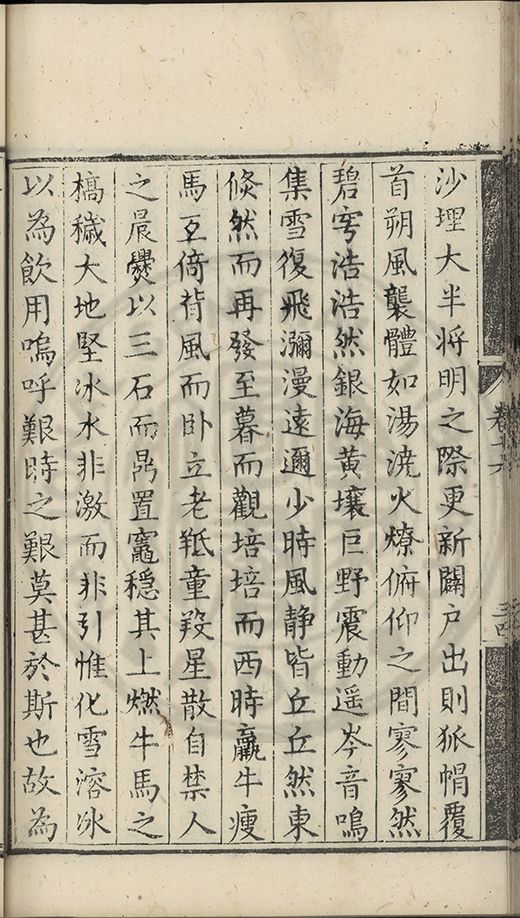 沙埋大半将明之際更新闢户出則狐帽覆
首朔風襲體如湯澆火燎俯仰之間寥寥然
碧穹浩浩然銀海黄壤巨野震動遥岑音鳴
集雪復飛瀰漫遠邇少時風静皆丘丘然東
倐然而再發至暮而觀培培而西時羸牛瘦
馬互倚背風而卧立老羝童羖星散自禁人
之晨爨以三石而鼎置竈穩其上燃牛馬之
槁穢大地堅冰水非激而非引惟化雪溶冰
以為飲用嗚呼艱時之艱莫甚於斯也故為
卷十六